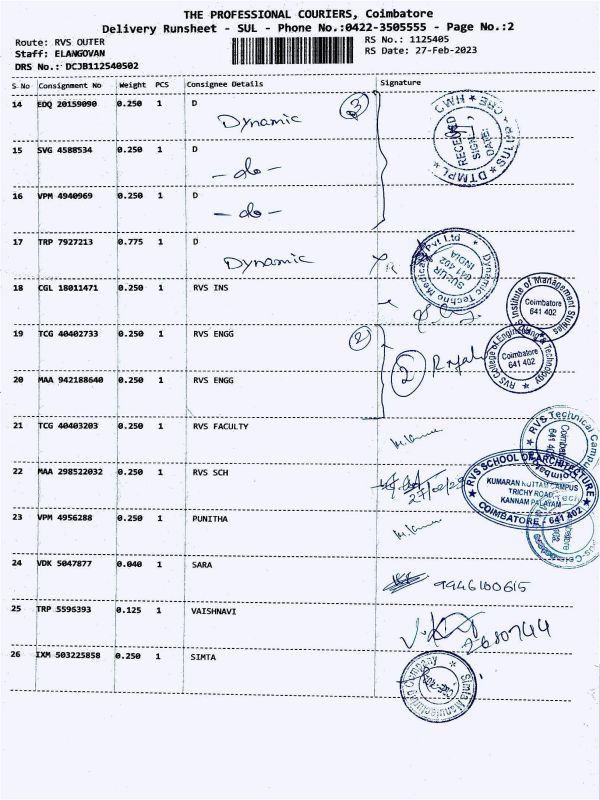 THE PROFESSIONAL COURIERS, Coimbatore
Delivery Runsheet - SUL - Phone No.:0422-3505555 - Page No.:2
Route: RVS OUTER
RS No.: 1125405
Staff: ELANGOVAN
RS Date: 27-Feb-2023
DRS No.: DCJB112540502
S No Consignment No Weight PCS Consignee Details Signature
14 EDQ 20159090 0.250 1 D
3
Dynamic
CWH
RECEIVED
SIGN
DATE:
DTMPL
15 SVG 4588534 0.250 1 D
- do -
16 VPM 4940969 0.250 1 D
- do -
17 TRP 7927213 0.775 1 D
Dynamic
Dynamic Techno Medicals Pvt Ltd
SULUR
641 402
INDIA
18 CGL 18011471 0.250 1 RVS INS
Institute of Management Studies
Coimbatore
641 402
19 TCG 40402733 0.250 1 RVS ENGG
2
2
RVS College of Engineering & Technology
Coimbatore
641 402
20 MAA 942188640 0.250 1 RVS ENGG
21 TCG 40403203 0.250 1 RVS FACULTY
RVS Technical Campus
22 MAA 298522032 0.250 1 RVS SCH
27/02/23
RVS SCHOOL OF ARCHITECTURE
KUMARAN KOTTAM CAMPUS
TRICHY ROAD
KANNAM PALAYAM
COIMBATORE - 641 402
23 VPM 4956288 0.250 1 PUNITHA
24 VDK 5047877 0.040 1 SARA
9946100615
25 TRP 5596393 0.125 1 VAISHNAVI
26 IXM 503225858 0.250 1 SIMTA
Simta Manufacturing Company